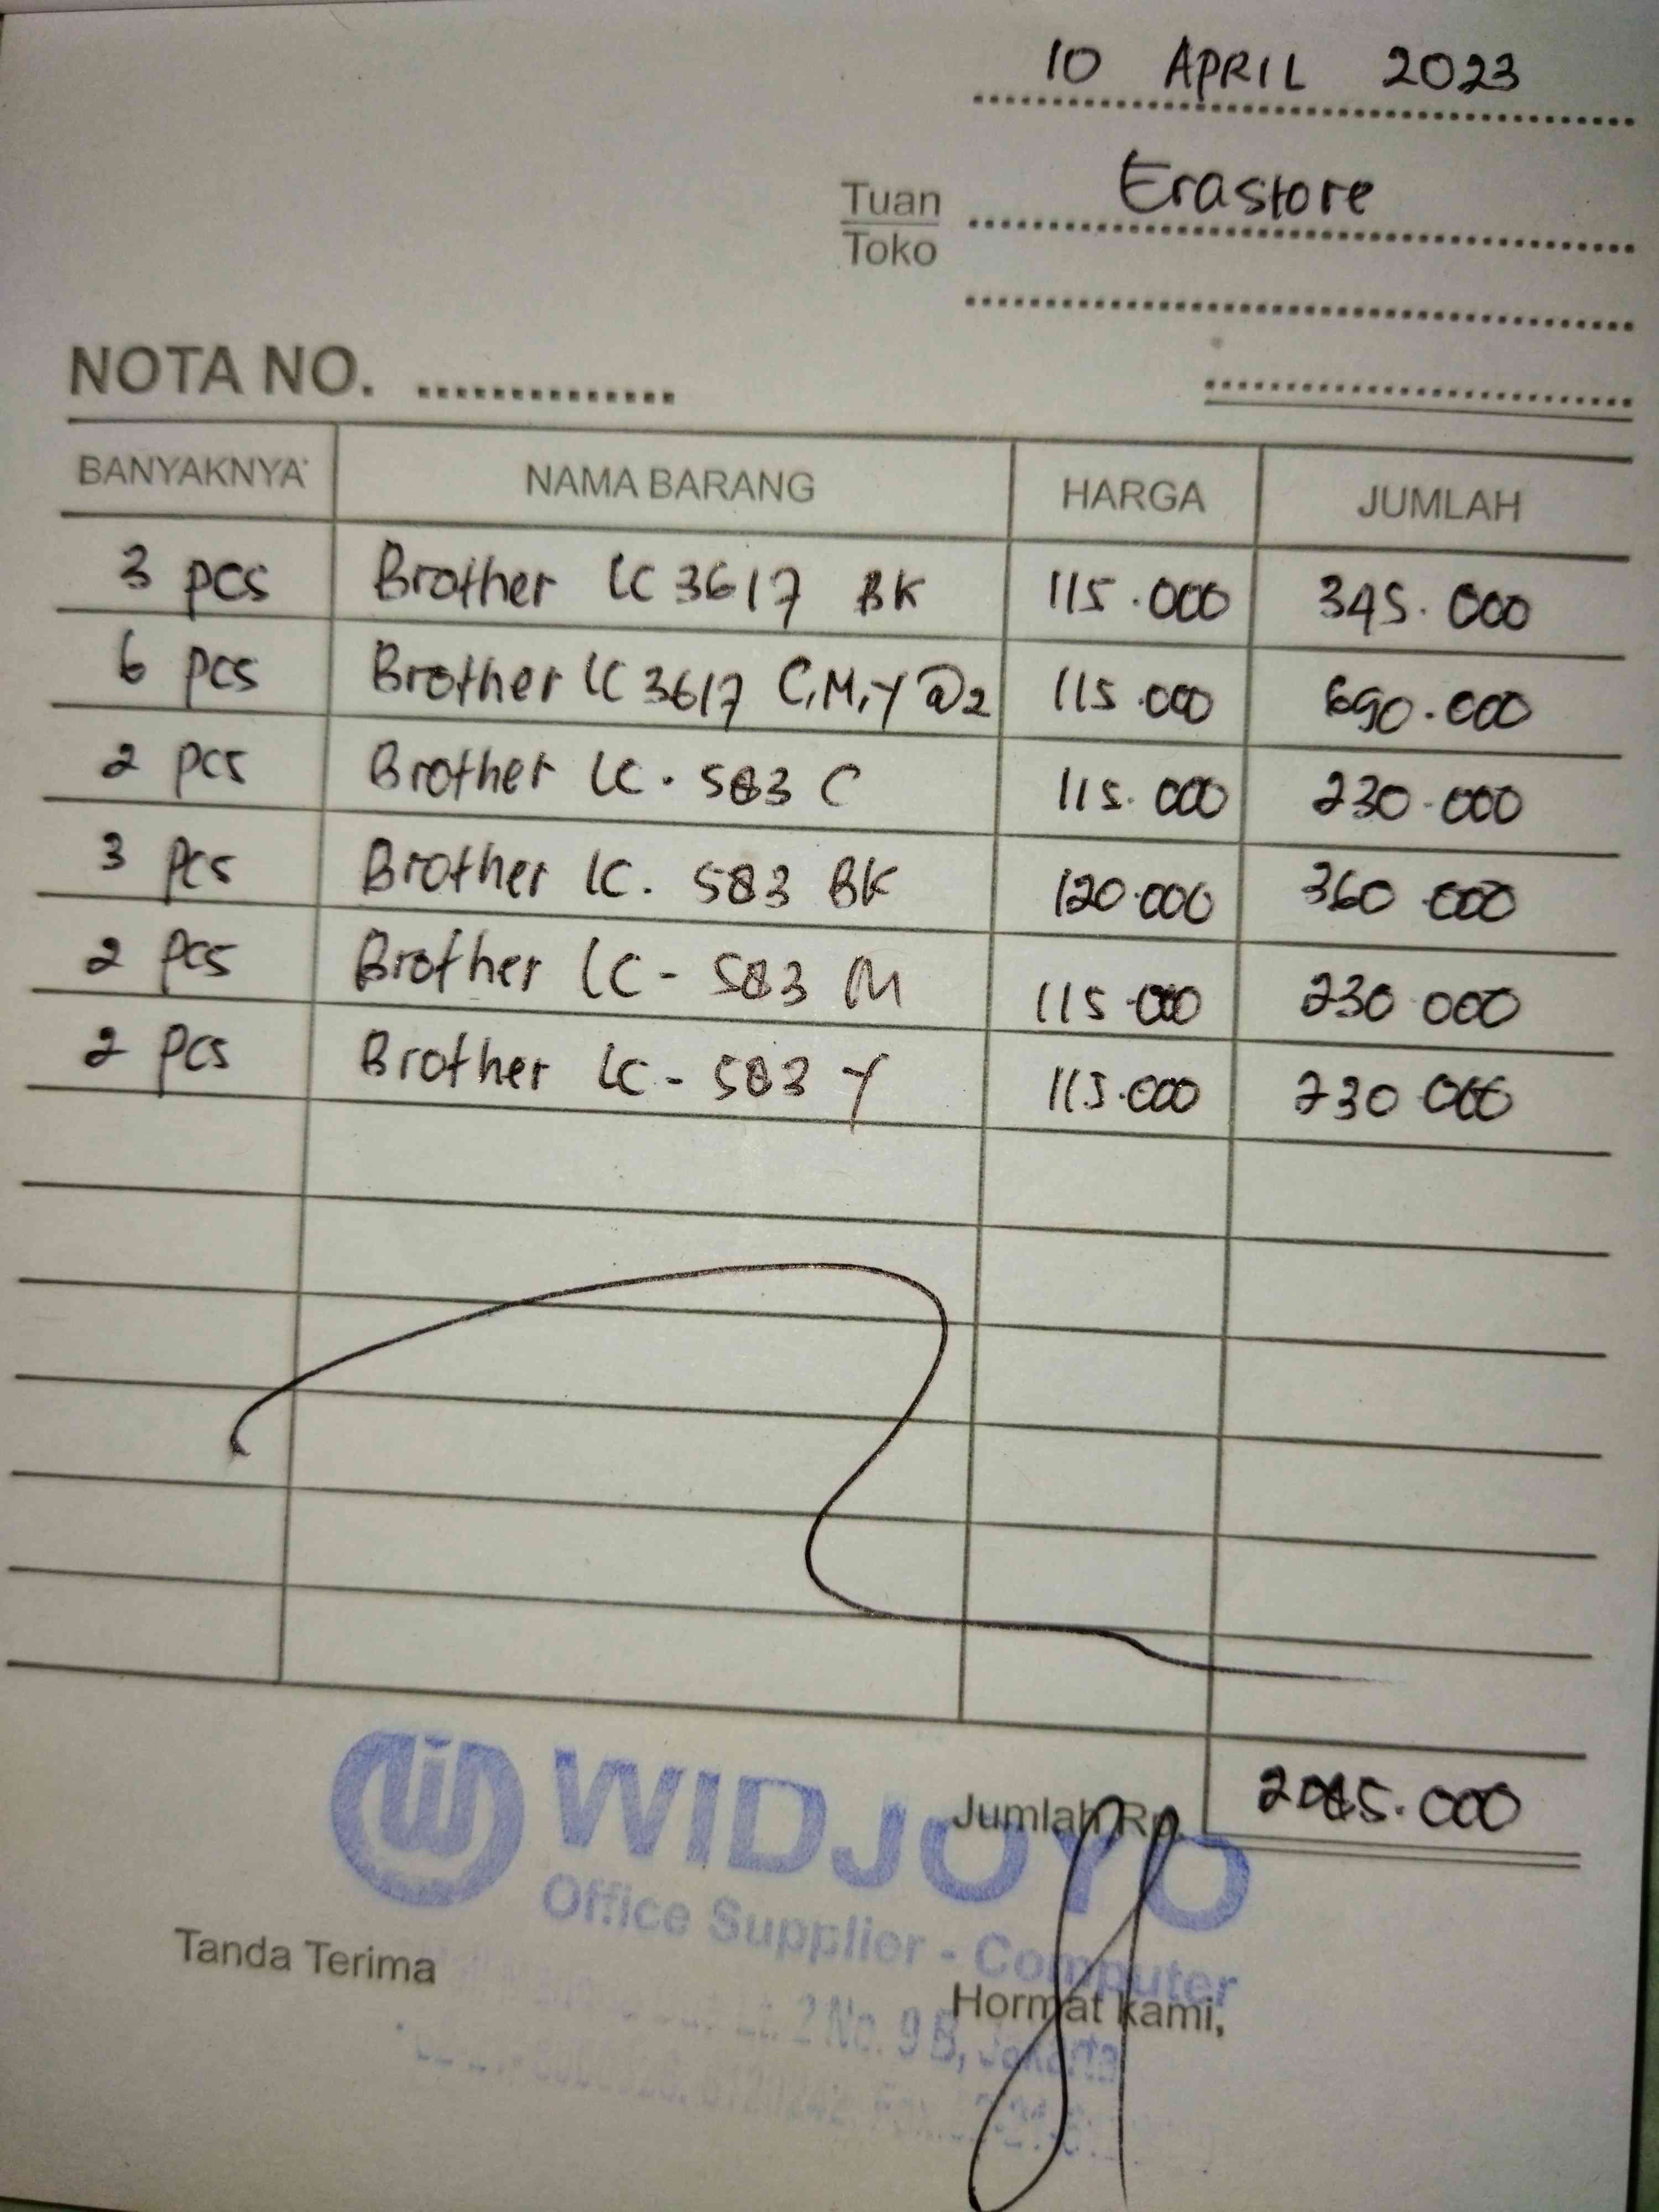 10 APRIL 2023
Tuan Erastore
Toko
NOTA NO.
BANYAKNYA NAMA BARANG HARGA JUMLAH
3 pcs Brother LC 3617 BK 115.000 345.000
6 pcs Brother LC 3617 C,M,Y @2 115.000 690.000
2 pcs Brother LC. 583 C 115.000 230.000
3 pcs Brother LC. 583 BK 120.000 360.000
2 pcs Brother LC - 583 M 115.000 230 000
2 pcs Brother LC - 583 Y 115.000 230 000
WIDJOYO
Jumlah Rp. 2085.000
Office Supplier - Computer
Tanda Terima
Hormat kami,
Lt. 2 No. 9 B, Jakarta